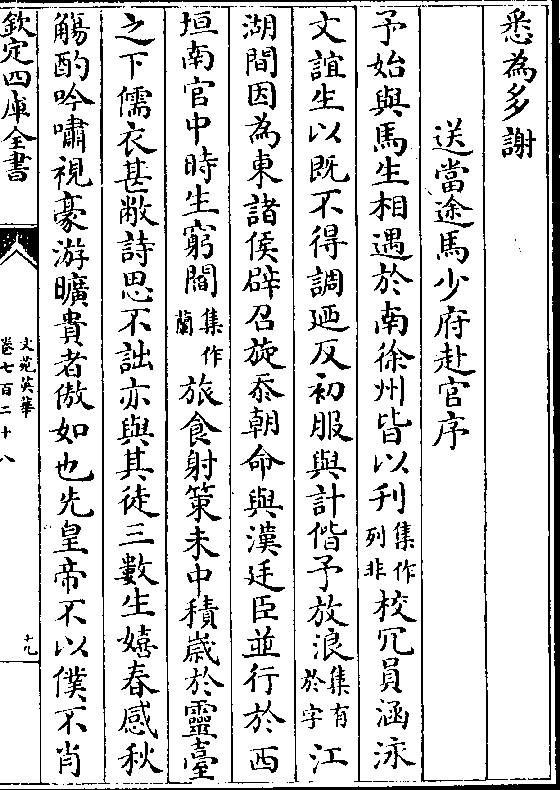 悉為多謝
送當途馬少府赴官序
予始與馬生相遇於南徐州皆以刋集作列非校冗員涵泳
文誼生以既不得調廼反初服與計偕予放浪集有於字江
湖間因為東諸侯辟召旋忝朝命與漢廷臣並行於西
垣南官中時生窮閻集作蘭旅食射策未中積歲於靈臺
之下儒衣甚敝詩思不詘亦與其徒三數生嬉春感秋
觴酌吟嘯視豪游曠貴者傲如也先皇帝不以僕不肖
欽定四庫全書
文苑英華
卷七百二十八
十九